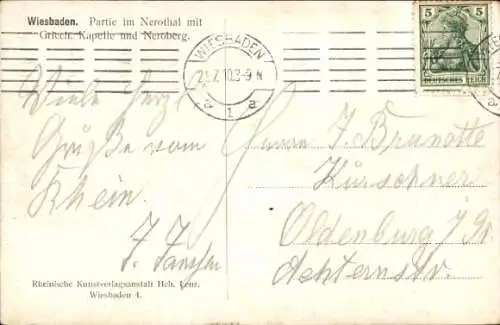 Wiesbaden. Partie im Nerothal mit
Griech. Kapelle und Neroberg.
WIESBADEN
21.7.10.8-9 N
a 1 a
5 5
DEUTSCHES REICH
Viele herzl
Grüße vom
Rhein.
J. Janssen
Herrn J. Brunotte
Kürschner
Oldenburg i/Gr
Achternstr.
Rheinische Kunstverlagsanstalt Hch. Lenz.
Wiesbaden 4.